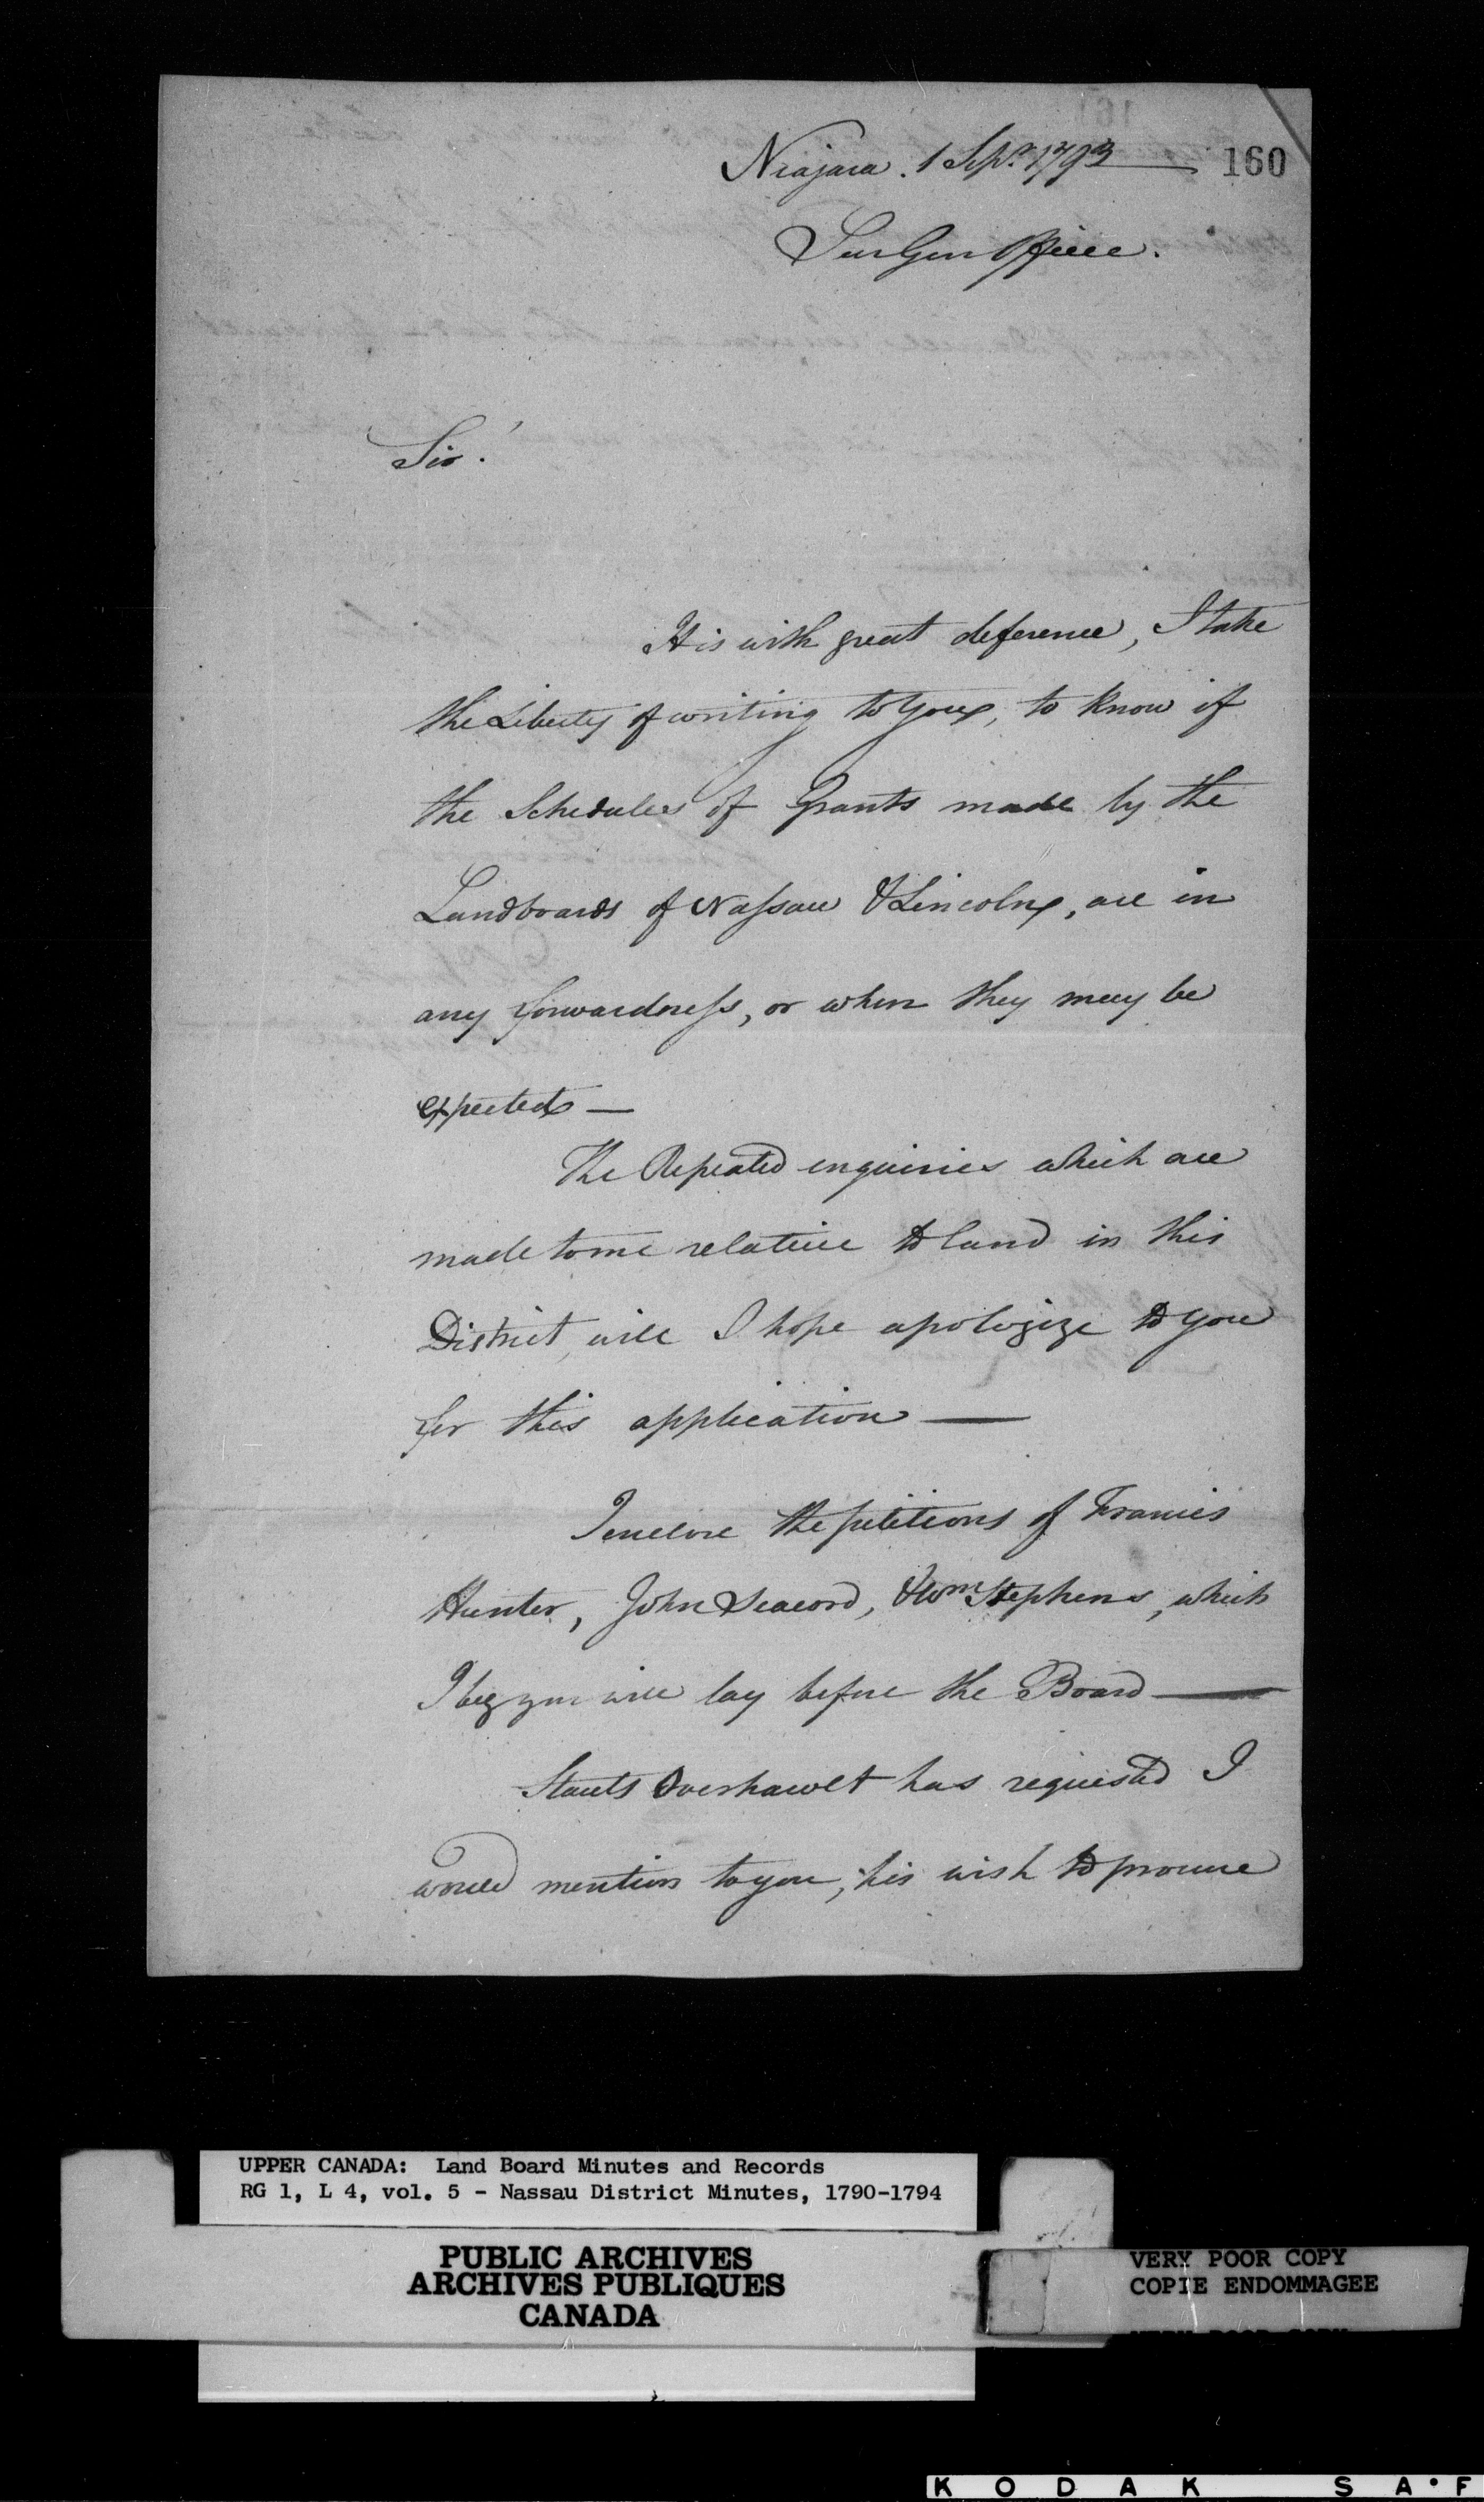 Niagara. 1 Sepr. 1793 160
Sur Gen Office.
Sir!
It is with great deference, I take
the Liberty of writing to you, to know if
the Schedules of Grants made by the
Landboards of Nassau & Lincoln, are in
any forwardness, or when they may be
expected —
The Repeated enquiries which are
made to me relative to land in this
District, will I hope apologize to you
for this application —
I enclose the petitions of Francis
Hunter, John Seacord, & Wm Stephens, which
I beg you will lay before the Board —
Stauts Overhawlt has requested I
would mention to you, his wish to procure
UPPER CANADA: Land Board Minutes and Records
RG 1, L 4, vol. 5 - Nassau District Minutes, 1790-1794
PUBLIC ARCHIVES
ARCHIVES PUBLIQUES
CANADA
VERY POOR COPY
COPIE ENDOMMAGEE
KODAK SA•F